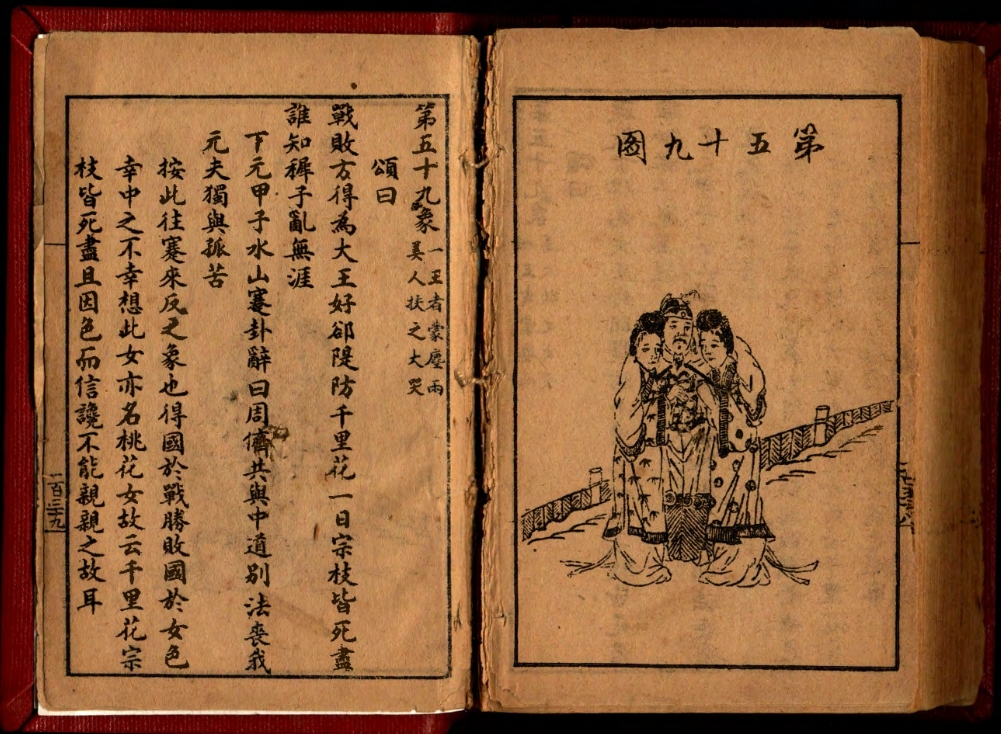 第五十九圖
第五十九象
一王者蒙塵兩
美人扶之大哭
頌曰
戰敗方得為大王好郤隄防千里花一日宗枝皆死盡
誰知穉子亂無涯
下元甲子水山蹇卦辭曰周儕共與中道別法喪我
元夫獨與孤苦
按此往蹇來反之象也得國於戰勝敗國於女色
幸中之不幸想此女亦名桃花女故云千里花宗
枝皆死盡且因色而信讒不能親親之故耳
一百三十九